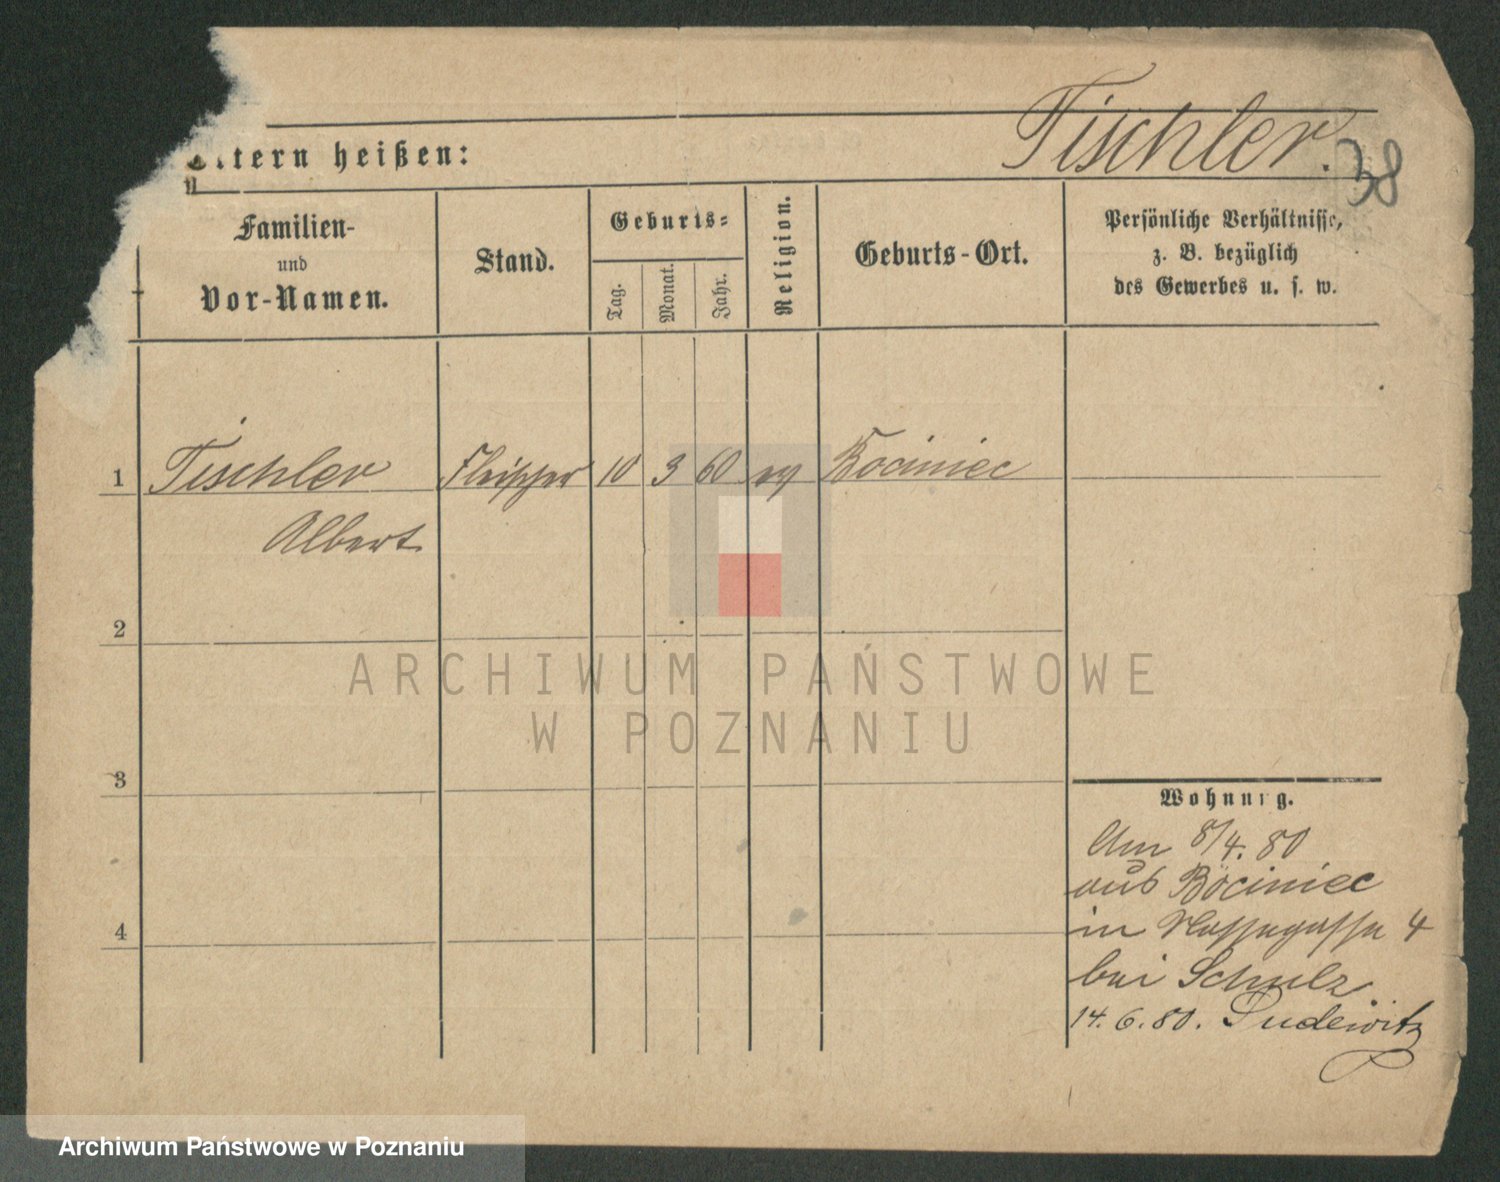 Tischler.
38
ltern heißen:
Familien-
und
Vor-Namen.
Stand.
Geburts-
Tag.
Monat.
Jahr.
Religion.
Geburts-Ort.
Persönliche Verhältnisse,
z. B. bezüglich
des Gewerbes u. s. w.
1 Tischler Fleischer 10 3 60 ev Bociniec
Albert
2
3
4
Wohnung.
Am 8/4. 80
aus Bociniec
in 4
bei Schulz
14. 6. 80. Pudewitz
ARCHIWUM PAŃSTWOWE
W POZNANIU
Archiwum Państwowe w Poznaniu